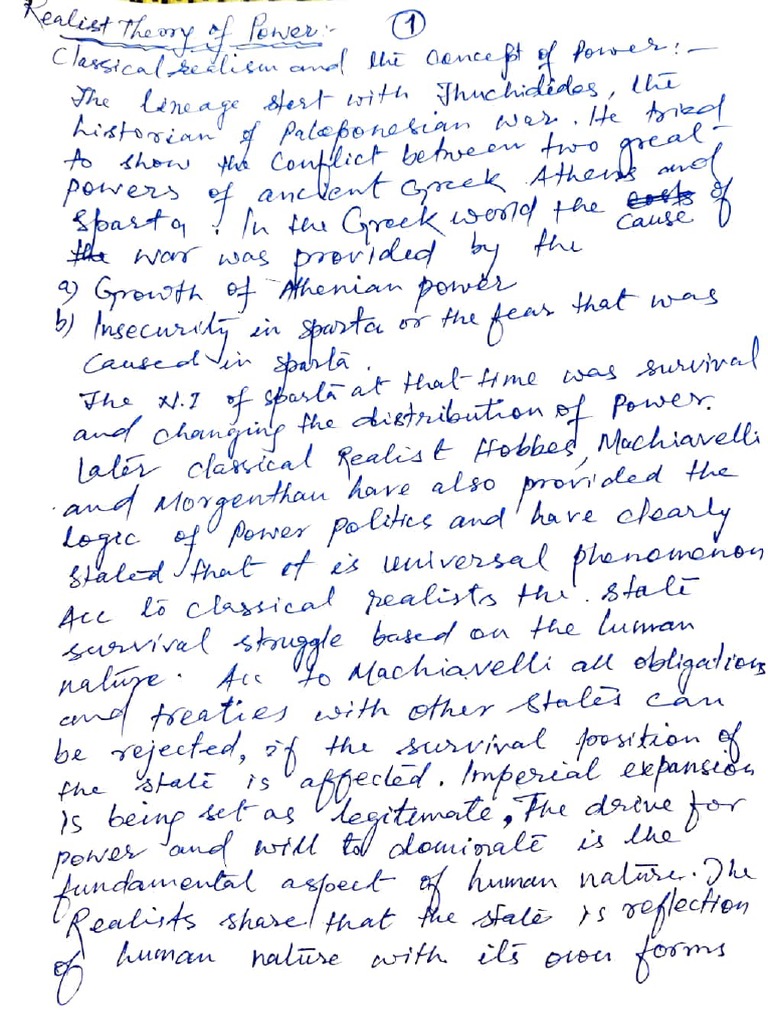 Realist Theory of Power:-
①
Classical realism and the concept of Power:-
The lineage start with Thuchidides, the
historian of Paleponesian war. He tried
to show the conflict between two great-
powers of ancient Greek Athens and
Sparta. In the Greek world the cause of
war was provided by the
a) Growth of Athenian power
b) Insecurity in Sparta or the fear that was
caused in Sparta.
The N.I of Sparta at that time was survival
and changing the distribution of Power.
Later classical Realist Hobbes, Machiavelli
and Morgenthau have also provided the
logic of Power Politics and have clearly
stated that it is universal phenomenon
Acc to classical realists the state
survival struggle based on the human
nature. Acc to Machiavelli all obligations
and treaties with other states can
be rejected, if the survival position of
the state is affected. Imperial expansion
is being set as legitimate, The drive for
power and will to dominate is the
fundamental aspect of human nature. The
Realists share that the state is reflection
of human nature with its own forms